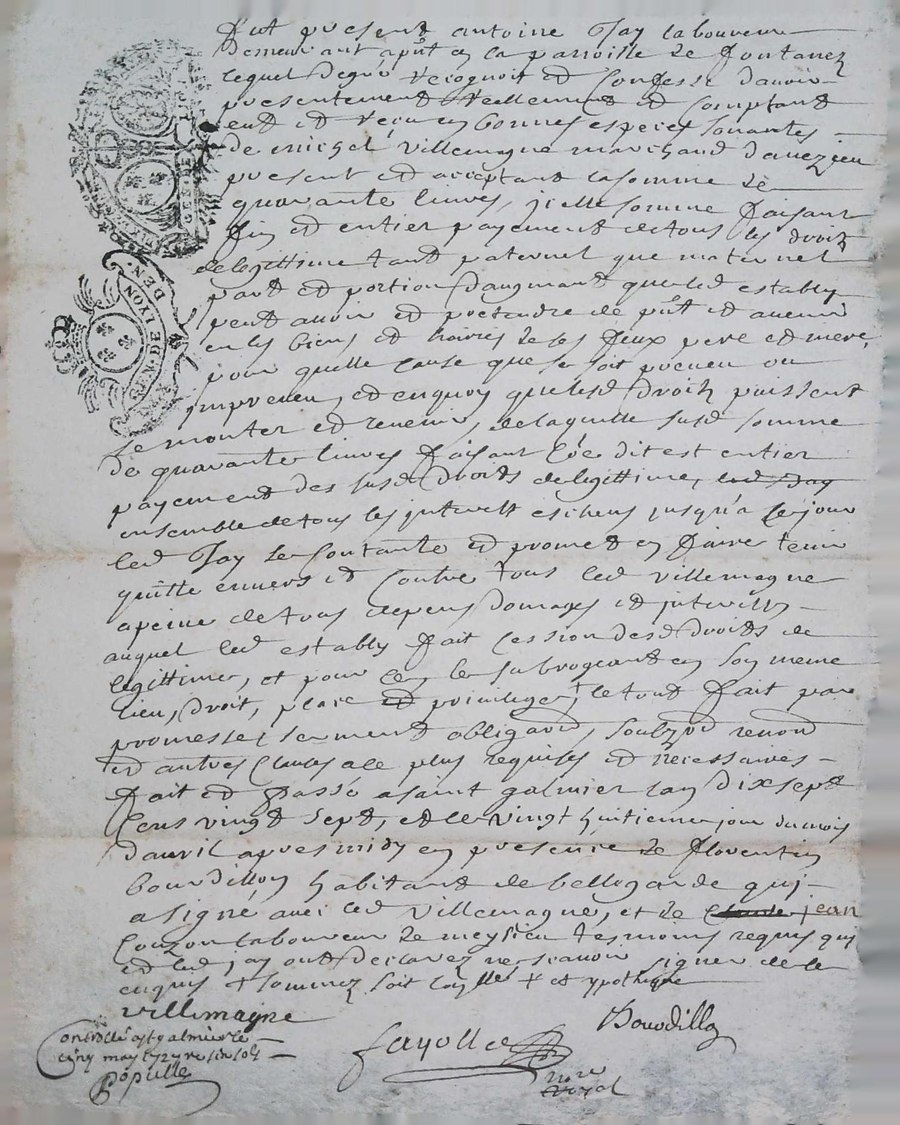 Fut present antoine Jay laboureur
Demeurant a pñt en la parroisse de fontanez
lequel degré recognoit et Confesse d'avoir
presentement reellement et Comptant
eut et receu en bonnes especes sonantes
de michel villemagne marchand
present et acceptant la somme de
quarante livres, jcelle somme faisant
fin et entier payement de tous les droits
de legittime tant paternel que maternel
part et portion D'augmant que led establÿ
peut avoir et pretendre de pñt et avenir
en les biens et hoiries de ses feux pere et mere
pour quelle Cause que se soit preveu ou
jmpreveu, et en quoy que lesd droits puissent
se monter et revenir, de laquelle susd somme
de quarante livres faisant Côe dit est entier
payement des susd Droits de legittime, led Jay
ensemble de tous les jnterests escheus jusqu'a Ce jour
led Jay se Contante et promet en faire tenir
quitte envers et Contre tous led villemagne
a peine de tous depens Domages et jnterests
auquel led establÿ fait Cession desd Droits de
legittime, et pour Ce, le subrogeant en son meme
lieu, Droit, place et privileges + le tout fait par
promesses serment obligaõn, soubzõn renoõn
et autres Clauses a ce plus requises et necessaires
Fait et Passé a saint galmier lan Dix sept
Cens vingt sept, et le vingt huitieme jour du mois
d'avril apres midy en presence de florentin
bourdillon habitant de bellegarde qui
a signé avec led villemagne, et de Claude + jean
Couzon laboureur de meylieu tesmoins requis qui
et led jay ont Declarez ne scavoir signer de ce
enquis + sommez soit + et ypotheque
villemagne
Bourdillon
Controllé a st galmier le
cinq may 1727 re six sols
Populle
fayolle
nore
royal
GEN. DE LYON
GEN. DE LYON